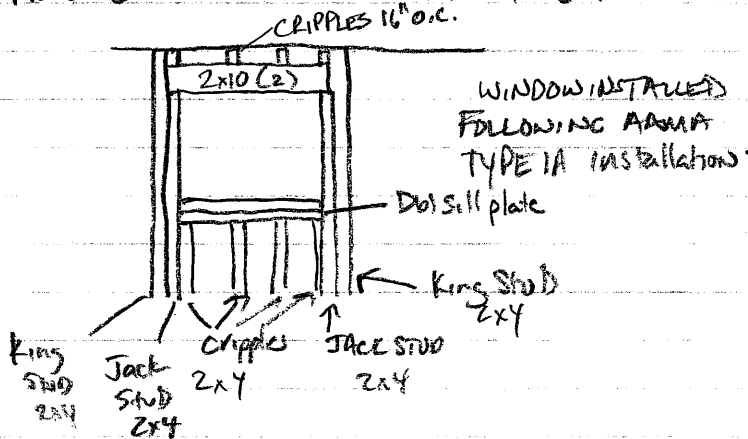 CRIPPLES 16" O.C.
2x10 (2)
WINDOW INSTALLED
FOLLOWING AAMA
TYPE 1A installation.
Dbl sill plate
King Stud
2x4
King
Stud
2x4
Jack
Stud
2x4
Cripples
2x4
JACK STUD
2x4